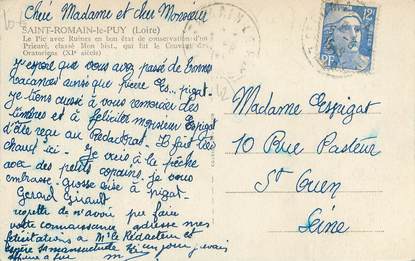 Chère Madame et cher Monsieur
SAINT-ROMAIN-le-PUY (Loire)
Le Pic avec Ruines en bon état de conservation d'un
Prieuré, classé Mon hist., qui fut le Couvent des
Oratoriens (XIe siècle)
J'espère que vous avez passé de bonnes
vacances ainsi que pierre Es...pigat.
je tiens aussi à vous remercier des
timbres et à féliciter monsieur Espigat
d'être reçu au Rédactorat. Il fait très
chaud ici. Je vais à la pêche
avec des petits copains. je vous
embrasse. grosse bise à pigat.
Gérard
regrette de n'avoir pu faire
votre connaissance adresse mes
félicitations à Mr le Rédacteur et
un jour
12F
RF
Madame Espigat
10 Rue Pasteur
St Ouen
Seine